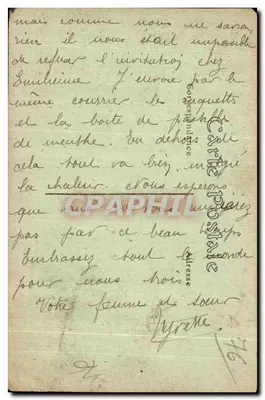 mais comme nous ne savions
rien il nous était impossible
de refuser l'invitation chez
J'envoie par le
même courrier les
et la boite de
de menthe. En dehors de
cela tout va bien, malgré
la chaleur. Nous espérons
que vous
pas par ce beau temps
Embrassez tout le monde
pour nous trois
Votre femme et sœur
Carte Postale
Correspondance
Adresse
CPAPHIL
76